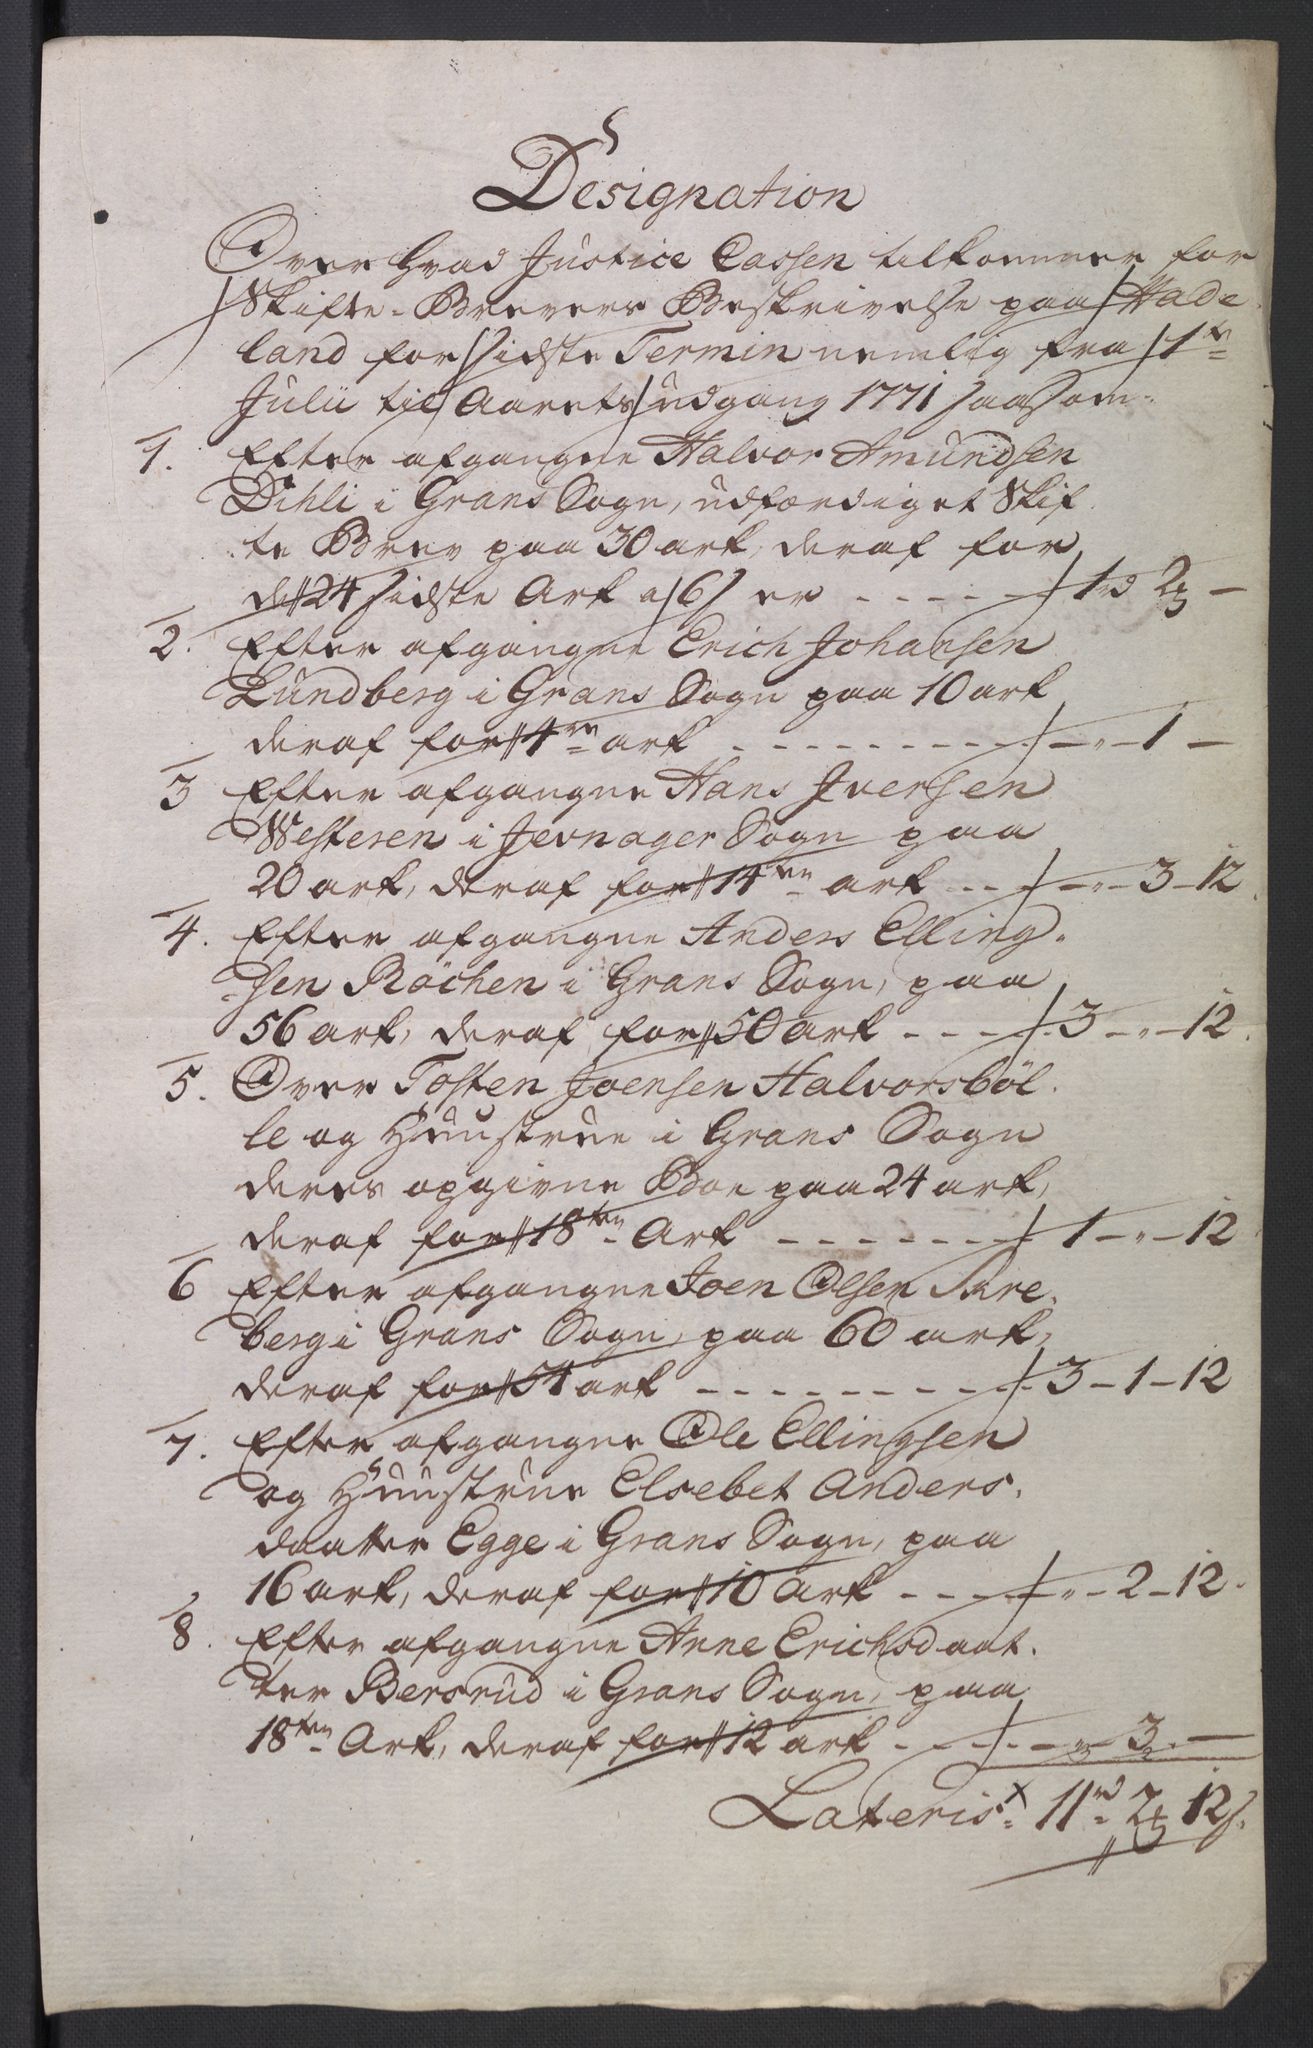 Designation
Over hvad Justice Cassen tilkommer for
Skifte-Brevers Beskrivelse paa Hade-
land for sidste Termin nemlig fra 1te
Julii til Aarets udgang 1771 saasom.
1. Efter afgangne Halvor Amundsen
Dihli i Grans Sogn, udfærdiget Skif-
te Brev paa 30 ark, deraf for
de 24 sidste Ark a 6 s er - - - - - 1 rd 2 mk -
2. Efter afgangne Erich Johansen
Lundberg i Grans Sogn paa 10 ark
deraf for 4re ark - - - - - - - - - " - 1 -
3 Efter afgangne Hans Iversen
Westeren i Jevnager Sogn paa
20 ark, deraf for 14ten ark - - - " - 3 - 12
4. Efter afgangne Anders Elling-
sen Röchen i Grans Sogn, paa
56 ark, deraf for 50 ark - - - 3 - " - 12.
5. Over Tosten Joensen Halvorsböl-
le og Huustrue i Grans Sogn
deres opgivne Boe paa 24 ark,
deraf for 18ten Ark - - - - - - - 1 - " - 12
6 Efter afgangne Joen Olsen Skre-
berg i Grans Sogn, paa 60 ark,
deraf for 54 ark - - - - - - - - - 3 - 1 - 12
7. Efter afgangne Ole Ellingsen
og Huustrue Elsebet Anders-
daatter Egge i Grans Sogn, paa
16 ark, deraf for 10 Ark - - - - " - 2 - 12.
8. Efter afgangne Anne Erichsdaat-
ter Bersrud i Grans Sogn, paa
18ten Ark, deraf for 12 ark - - - - " - 3 -
Lateris 11 rd 2 mk 12 s.